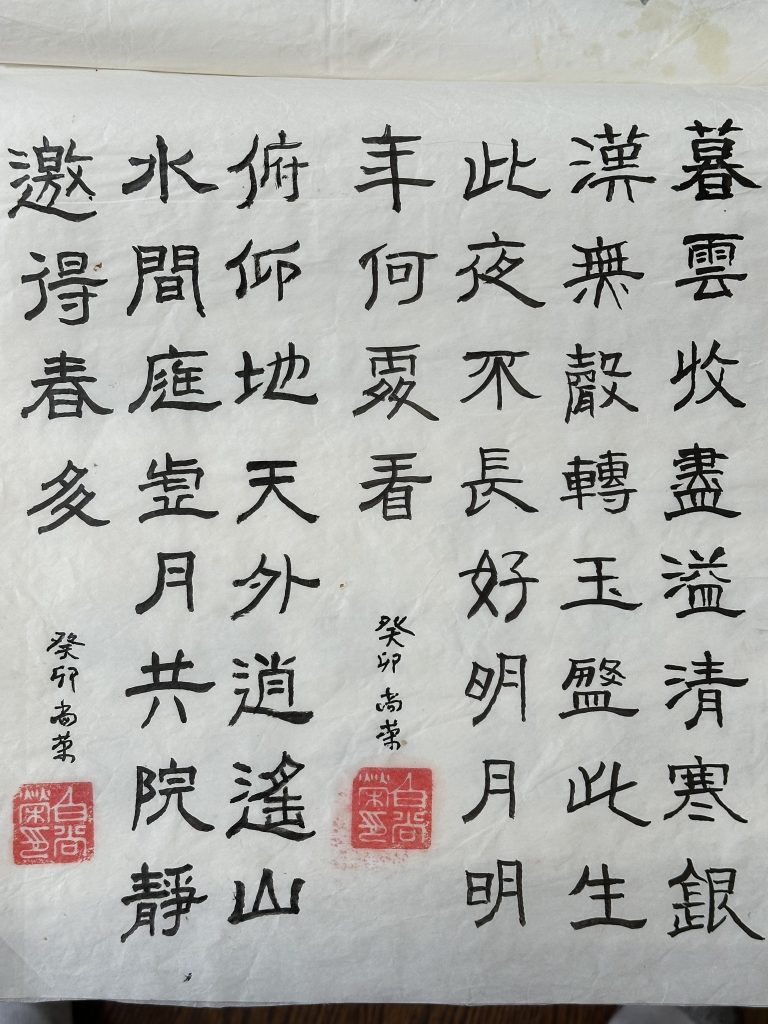 暮雲收盡溢清寒銀
漢無聲轉玉盤此生
此夜不長好明月明
年何處看
癸卯尚荣
白尚榮印
俯仰地天外逍遙山
水間庭虛月共院靜
邀得春多
癸卯尚荣
白尚榮印